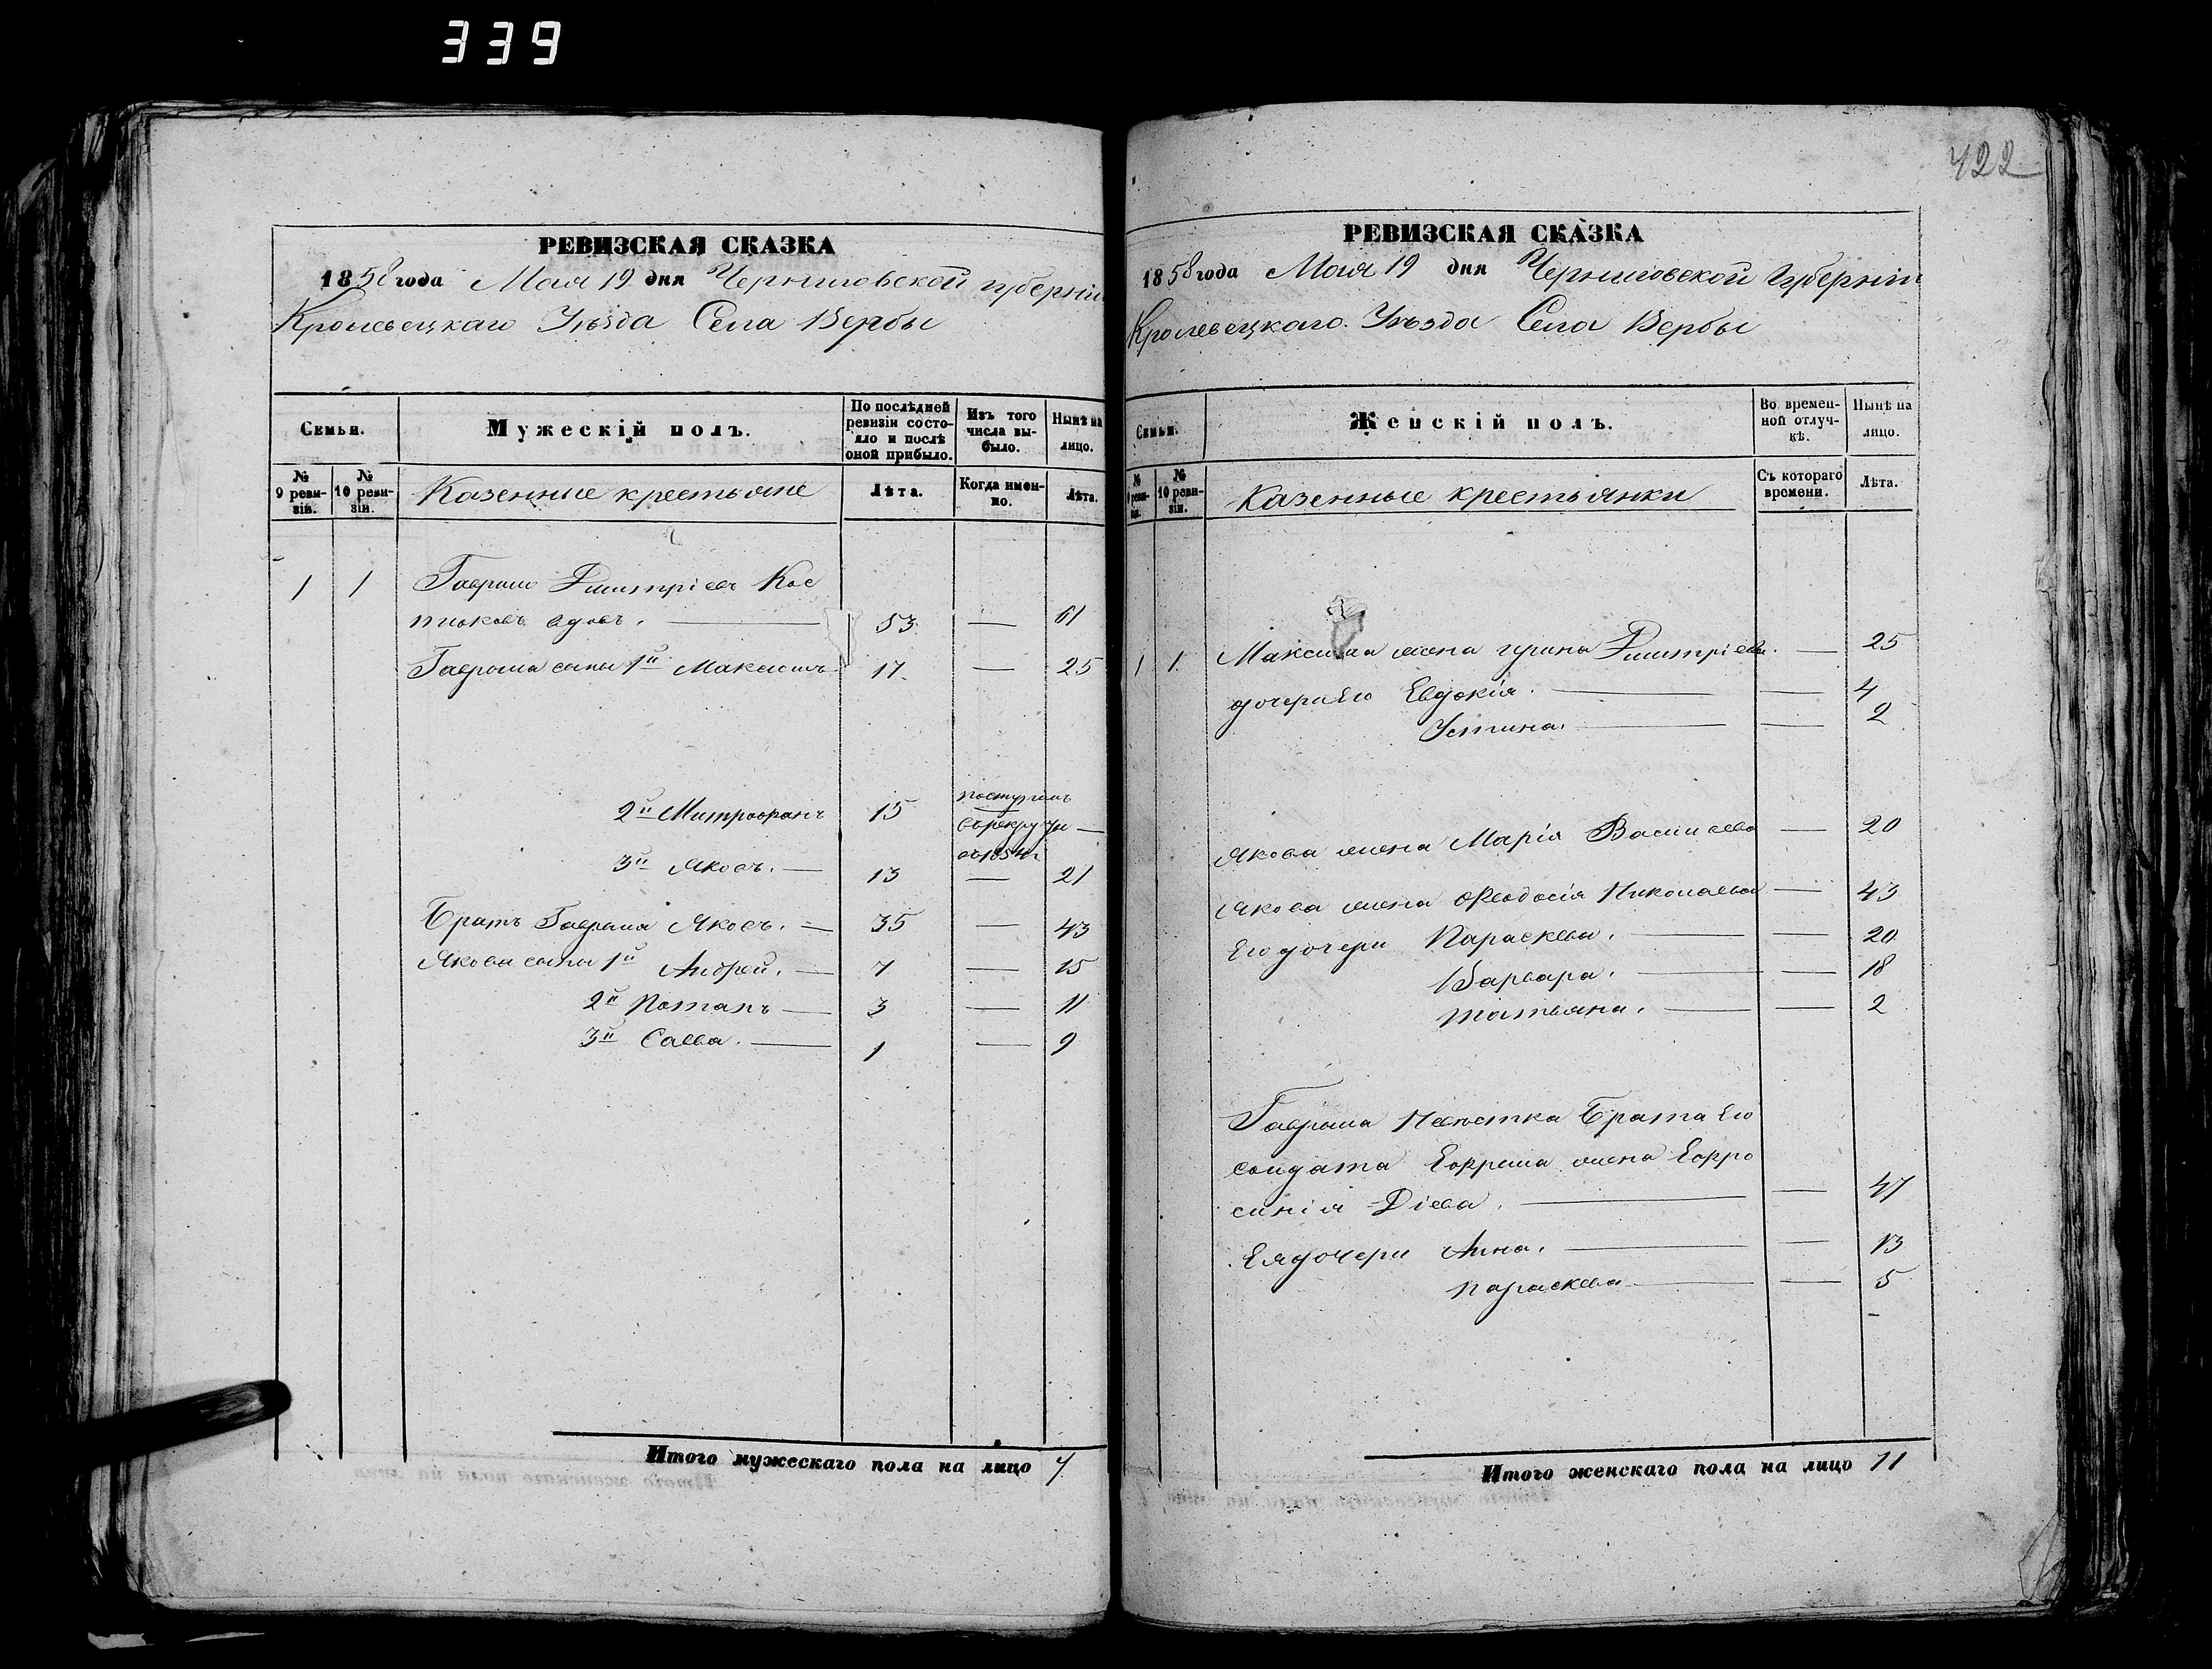 339
422
РЕВИЗСКАЯ СКАЗКА
1858 года Мая 19 дня Черниговской губерніи
Кролевецкаго Уѣзда Села Вербы
Семьи.
Мужескій полъ.
По послѣдней ревизіи состояло и послѣ оной прибыло.
Изъ того числа выбыло.
Нынѣ на лицо.
№ 9 ревизіи.
№ 10 ревизіи.
Казенные крестьяне
Лѣта.
Когда именно.
Лѣта.
1 1 Гаврило Дмитріевъ Кос
тюковъ вдовъ. 53 — 61
Гаврила сыны 1й Максимъ 17 — 25
2й Митрофанъ 15 поступилъ въ рекруты въ 1854 г —
3й Яковъ. — 13 — 21
Братъ Гаврила Яковъ. — 35 — 43
Якова сыны 1й Андрей. — 7 — 15
2й Потапъ — 3 — 11
3й Савва. — 1 — 9
Итого мужескаго пола на лицо 7
РЕВИЗСКАЯ СКАЗКА
1858 года Мая 19 дня Черниговской Губерніи
Кролевецкаго Уѣзда Села Вербы
Семьи.
Женскій полъ.
Во временной отлучкѣ.
Нынѣ на лицо.
№ 9 ревизіи.
№ 10 ревизіи.
Казенные крестьянки
Съ котораго времени.
Лѣта.
1 1 Максима жена Дмитріева. — 25
дочери Его Евдокія. — — 4
Устина. — — 2
Якова жена Марія Василева — 20
Якова жена Феодосія Николаева — 43
Его дочери Параскева. — — 20
Варвара. — — 18
Татьяна. — — 2
Гаврила Невѣстка Брата Его
солдата Ефрема жена Ефро
синія Діева. — — 47
Ея дочери Анна. — — 13
Параскева — — 5
Итого женскаго пола на лицо 11